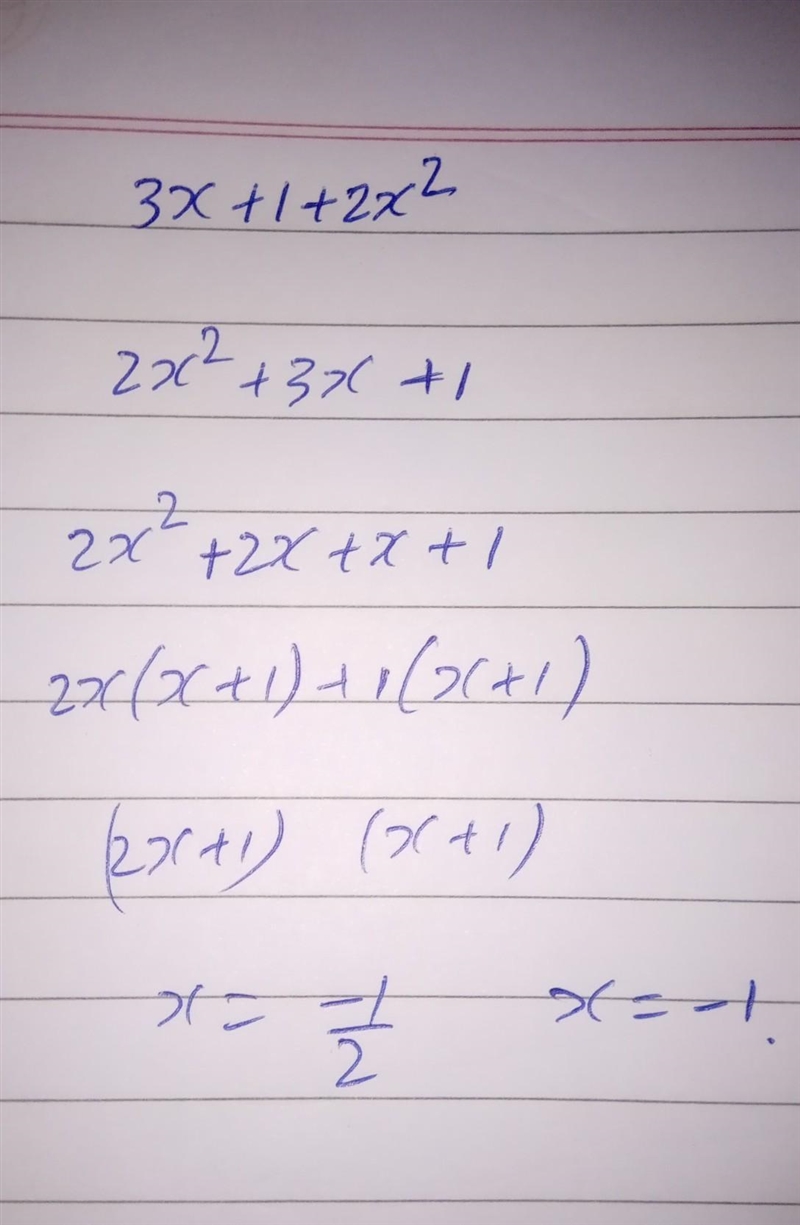 3x + 1 + 2x²
2x² + 3x + 1
2x² + 2x + x + 1
2x(x + 1) + 1(x + 1)
(2x + 1) (x + 1)
x = -1/2 x = -1.